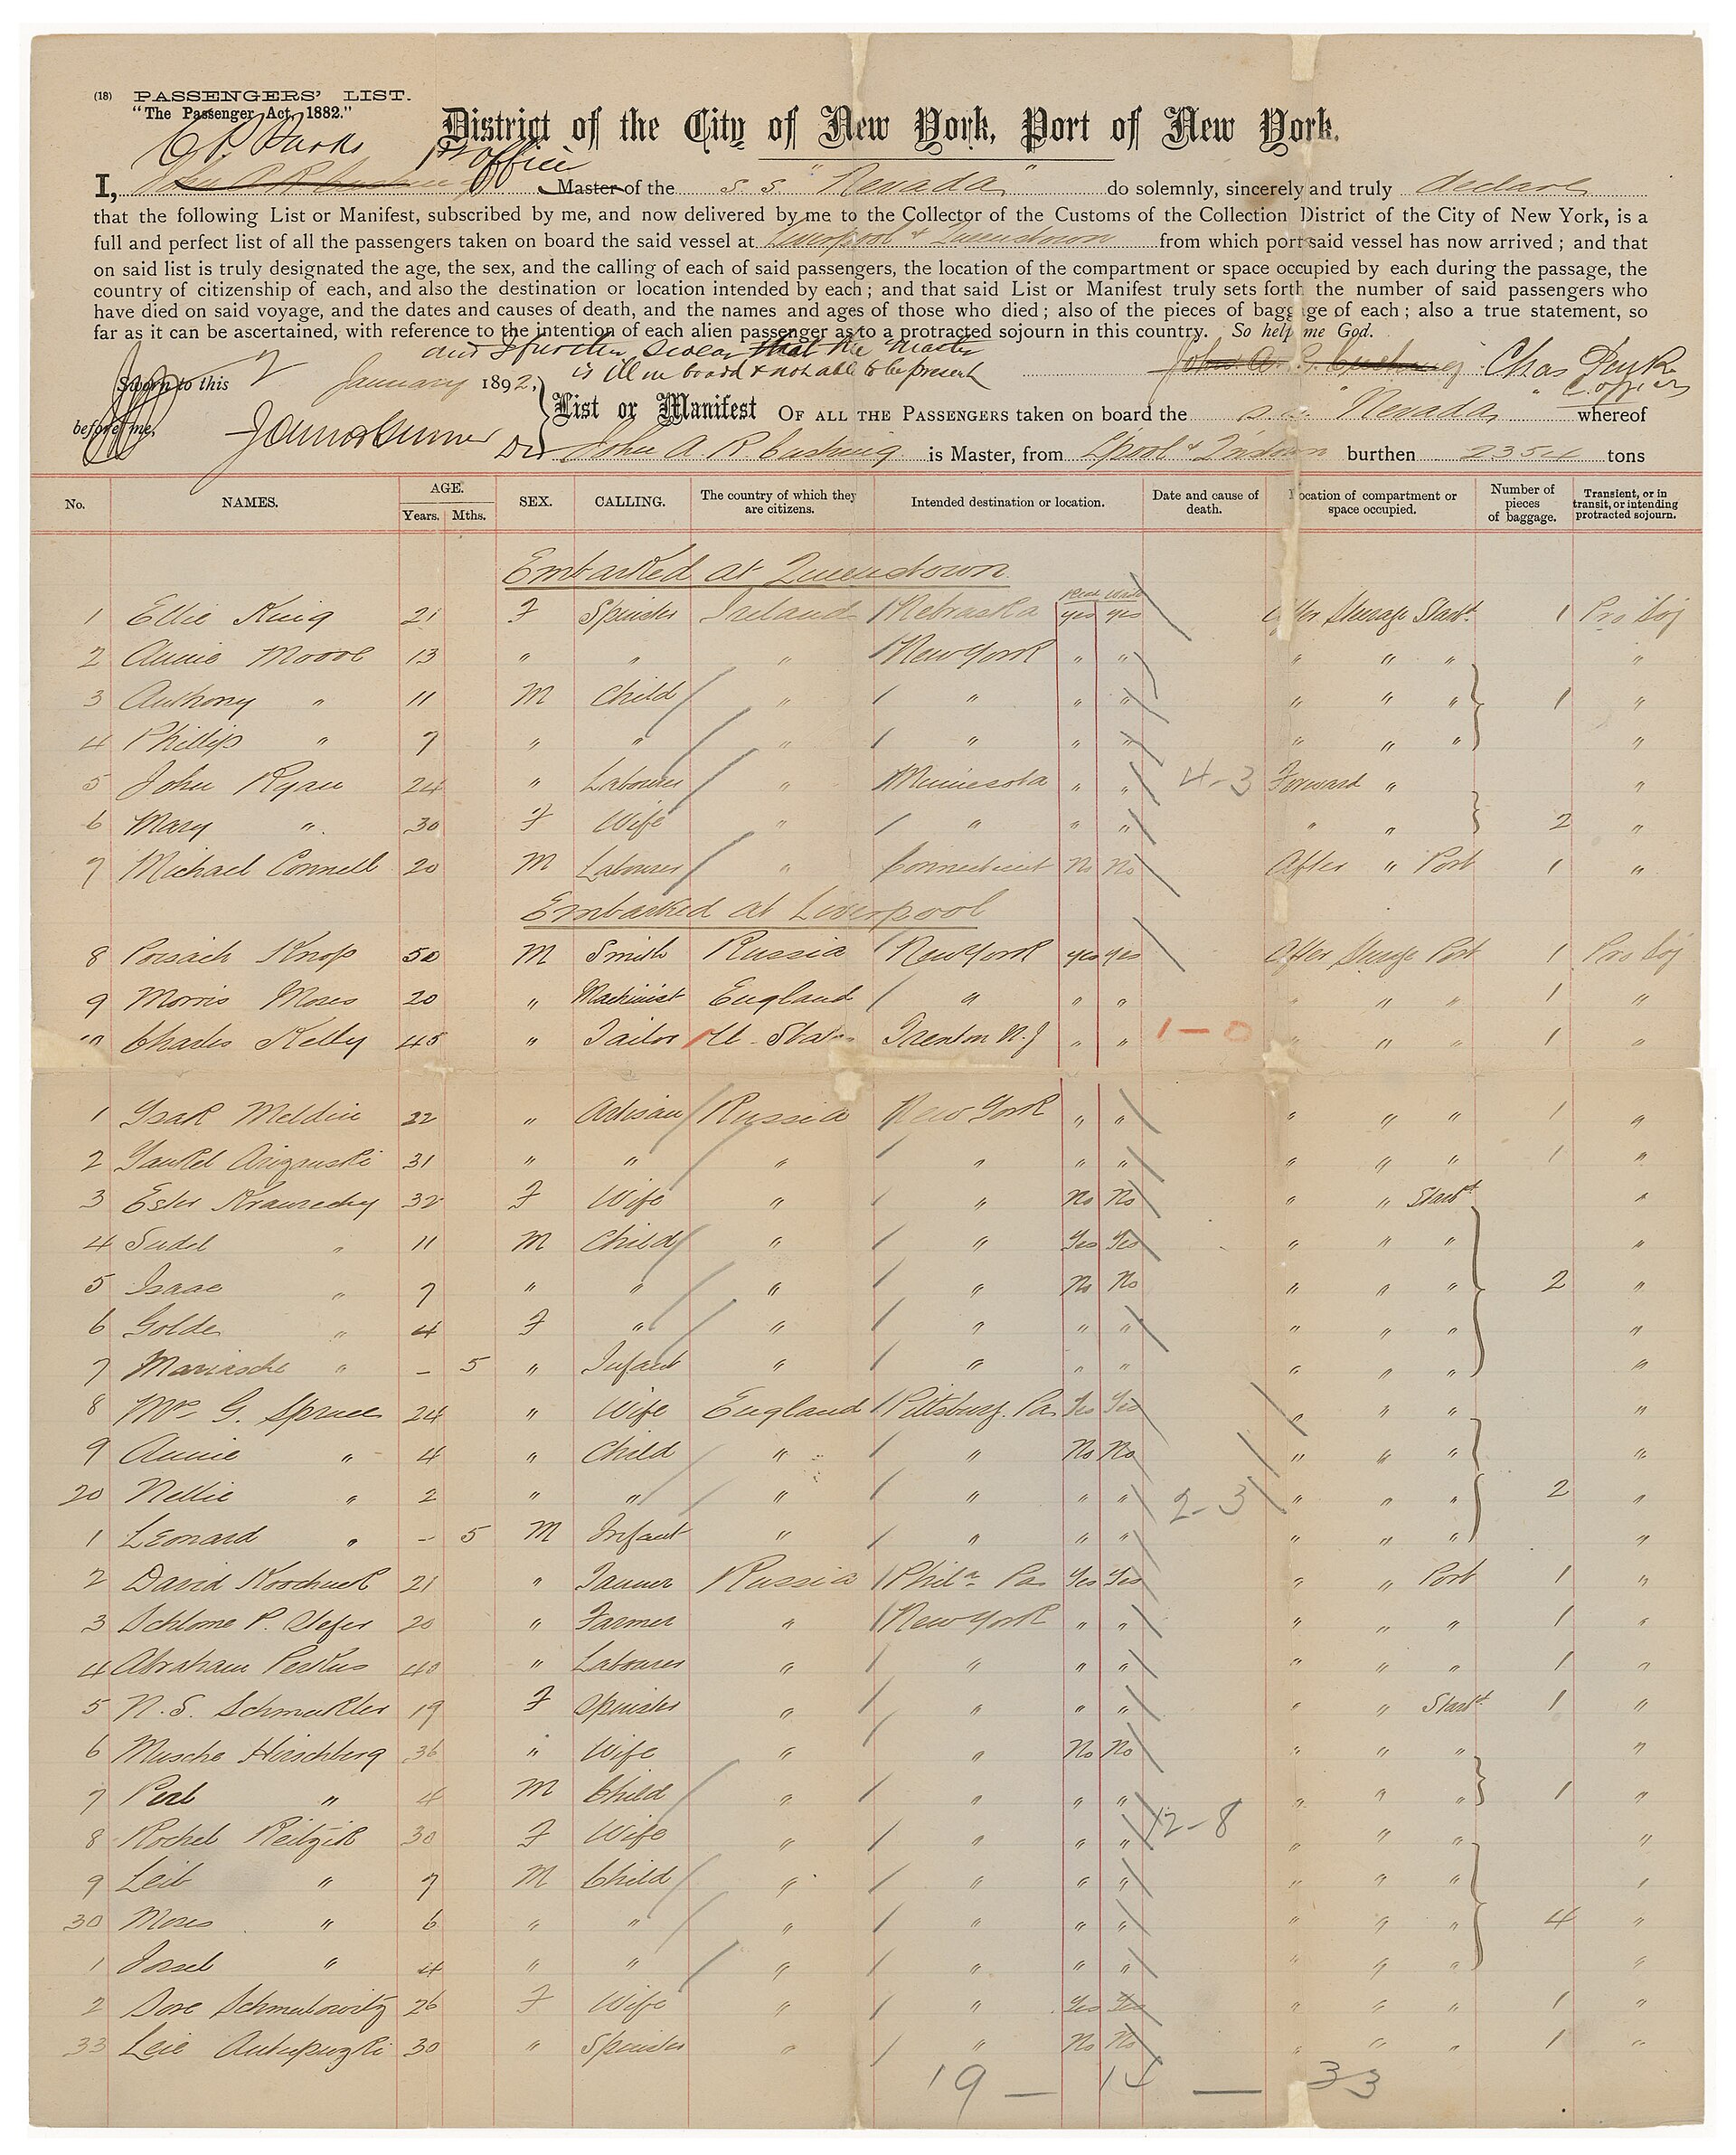 (18) PASSENGERS' LIST.
"The Passenger Act, 1882."
District of the City of New York, Port of New York.
1st Officer
I, John A R Cushing Master of the S. S. "Nevada" do solemnly, sincerely and truly declare
that the following List or Manifest, subscribed by me, and now delivered by me to the Collector of the Customs of the Collection District of the City of New York, is a
full and perfect list of all the passengers taken on board the said vessel at Liverpool & Queenstown from which port said vessel has now arrived; and that
on said list is truly designated the age, the sex, and the calling of each of said passengers, the location of the compartment or space occupied by each during the passage, the
country of citizenship of each, and also the destination or location intended by each; and that said List or Manifest truly sets forth the number of said passengers who
have died on said voyage, and the dates and causes of death, and the names and ages of those who died; also of the pieces of baggage of each; also a true statement, so
far as it can be ascertained, with reference to the intention of each alien passenger as to a protracted sojourn in this country. So help me God.
and I further swear that the Master
is ill on board & not able to be present
John A. R. Cushing Chas
Sworn to this 2 January 1892,
before me,
List or Manifest OF ALL THE PASSENGERS taken on board the S.S. "Nevada" whereof
John A. R Cushing is Master, from L'pool & Q'nstown burthen 2354 tons
No. NAMES. AGE. Years. Mths. SEX. CALLING. The country of which they are citizens. Intended destination or location. Date and cause of death. Location of compartment or space occupied. Number of pieces of baggage. Transient, or in transit, or intending protracted sojourn.
Embarked at Queenstown
Read Write
1 Ellie King 21 F Spinster Ireland Nebraska yes yes After Steerage Starbd 1 Pro Soj
2 Annie Moore 13 " " " New York " " " " " "
3 Anthony " 11 M Child " " " " " " " 1 "
4 Phillip " 7 " " " " " " " " " "
5 John Ryan 24 " Labourer " Minnesota " " 4-3 Forward " "
6 Mary " 30 F Wife " " " " " " 2 "
7 Michael Connell 20 M Labourer " Connecticut No No After " Port 1 "
Embarked at Liverpool
8 Porsach Knop 50 M Smith Russia New York yes yes After Steerage Port 1 Pro Soj
9 Morris Moses 20 " Machinist England " " " " " " 1 "
10 Charles Kelly 45 " Tailor U. States Trenton N.J " " 1-0 " " " 1 "
1 Isak Meldin 22 " Artisan Russia New York " " " " " 1 "
2 Yankel 31 " " " " " " " " " 1 "
3 Ester 32 F Wife " " No No " " Starbd "
4 Sudel " 11 M Child " " Yes Yes " " " "
5 Isaac " 7 " " " " No No " " " 2 "
6 Golde " 4 F " " " " " " " " "
7 Mariasche " - 5 " Infant " " " " " " " "
8 Mrs G. Spruce 24 " Wife England Pittsburg. Pa Yes Yes " " " "
9 Annie " 4 " Child " " No No " " " "
20 Nellie " 2 " " " " " " 2-3 " " " 2 "
1 Leonard " - 5 M Infant " " " " " " " "
2 David 21 " Tanner Russia Phila Pa Yes Yes " " Port 1 "
3 Schlome P. 20 " Farmer " New York " " " " " 1 "
4 Abraham Perkus 40 " Labourer " " " " " " " 1 "
5 N. S. Schmukler 19 F Spinster " " " " " " Starbd 1 "
6 Musche Hirschberg 36 " Wife " " No No " " " "
7 Perl " 4 M Child " " " " " " " 1 "
8 Rochel Reitzik 30 F Wife " " " " 12-8 " " " "
9 Leib " 7 M Child " " " " " " " "
30 Moses " 6 " " " " " " " " " 4 "
1 Jossel " 4 " " " " " " " " " "
2 Dore Schmulowitz 26 F Wife " " Yes Yes " " " 1 "
33 Leie 30 " Spinster " " No No " " " 1 "
19 — 14 — 33